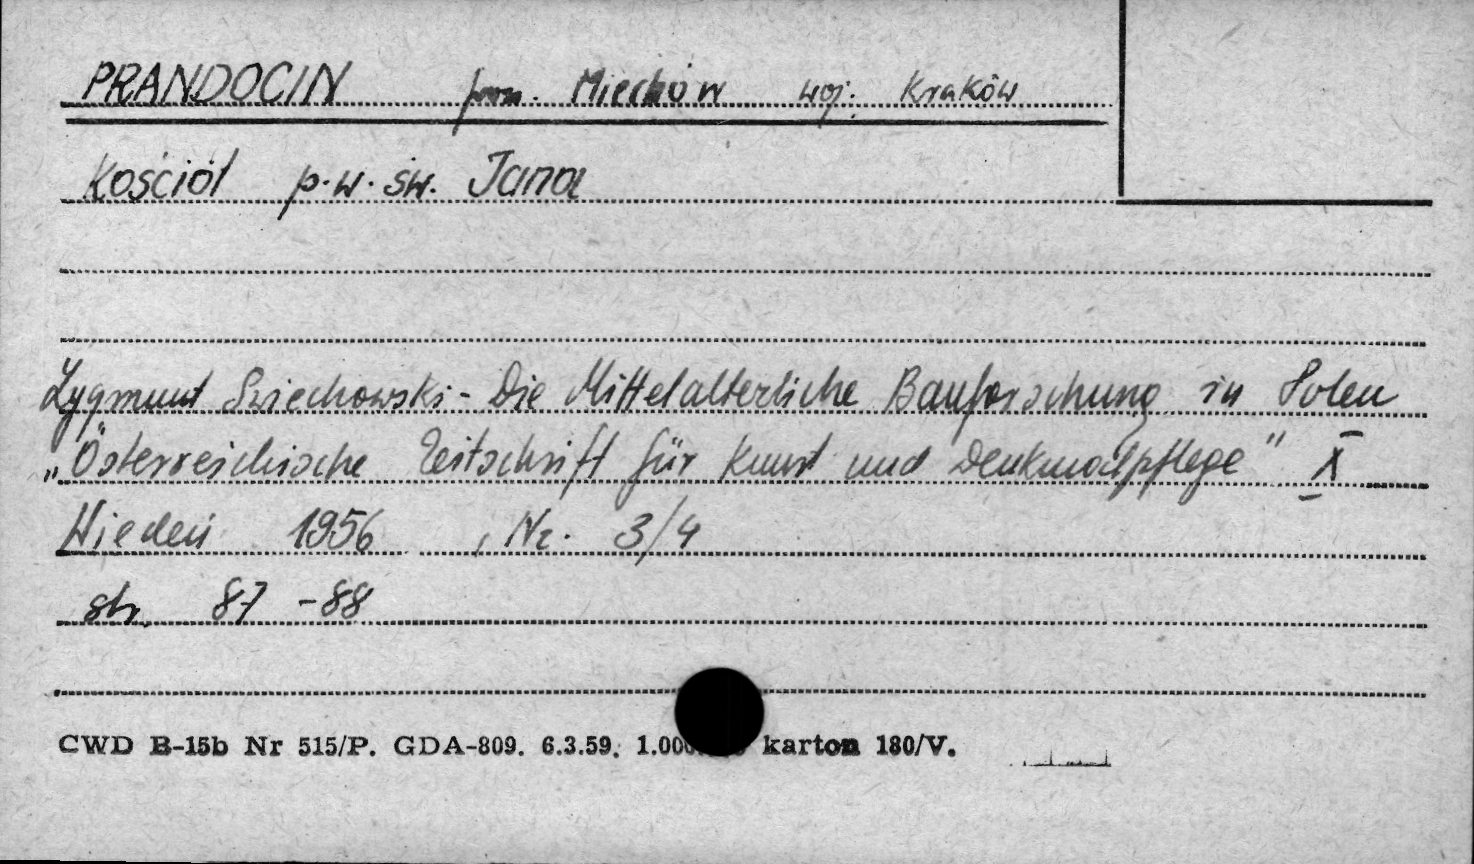 PRANDOCIN pow. Miechów woj. Kraków
Kościół p.w. św. Jana
Zygmunt Świechowski - Die Mittelalterliche Bauforschung in Polen
„Österreichische Zeitschrift für Kunst und Denkmalpflege" X
Wiedeń 1956, Nr. 3/4
str. 87-88
CWD B-15b Nr 515/P. GDA-809. 6.3.59. karton 180/V.